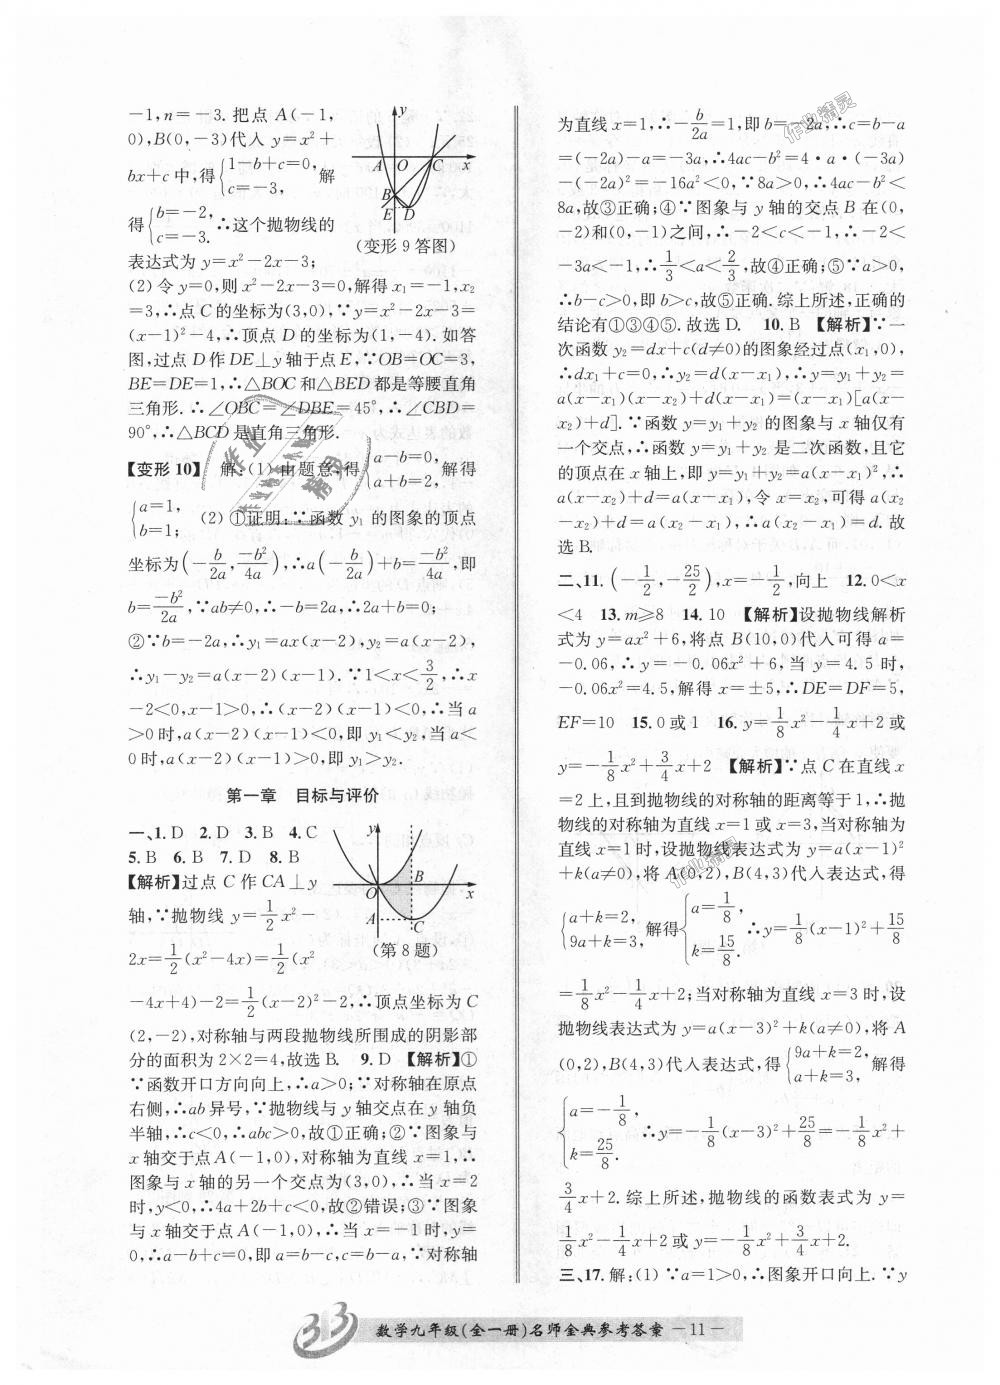 -1,n=-3. 把点 A(-1,
0),B(0,-3)代入 y=x²+
bx+c 中,得{1-b+c=0, c=-3, 解
得{b=-2, c=-3. ∴这个抛物线的
表达式为 y=x²-2x-3;
y
A O C x
B
E D
(变形 9 答图)
(2)令 y=0,则 x²-2x-3=0,解得 x₁=-1,x₂
=3,∴点 C 的坐标为(3,0),∵y=x²-2x-3=
(x-1)²-4,∴顶点 D 的坐标为(1,-4). 如答
图,过点 D 作 DE⊥y 轴于点 E,∵OB=OC=3,
BE=DE=1,∴△BOC 和△BED 都是等腰直角
三角形. ∴∠OBC=∠DBE=45°,∴∠CBD=
90°,∴△BCD 是直角三角形.
【变形 10】 解:(1)由题意,得{a-b=0, a+b=2, 解得
{a=1, b=1; (2) ①证明:∵函数 y₁ 的图象的顶点
坐标为(-b/2a, -b²/4a),∴a(-b/2a)+b=-b²/4a,即
b=-b²/2a,∵ab≠0,∴-b=2a,∴2a+b=0;
②∵b=-2a,∴y₁=ax(x-2),y₂=a(x-2),
∴y₁-y₂=a(x-2)(x-1).∵1<x<3/2,∴x
-2<0,x-1>0,∴(x-2)(x-1)<0,∴当 a
>0 时,a(x-2)(x-1)<0,即 y₁<y₂,当 a<
0 时,a(x-2)(x-1)>0,即 y₁>y₂.
第一章 目标与评价
一、1. D 2. D 3. B 4. C
5. B 6. B 7. D 8. B
【解析】过点 C 作 CA⊥y
轴,∵抛物线 y=1/2x²-
2x=1/2(x²-4x)=1/2(x²
y
O B x
A C
(第 8 题)
-4x+4)-2=1/2(x-2)²-2,∴顶点坐标为 C
(2,-2),对称轴与两段抛物线所围成的阴影部
分的面积为 2×2=4,故选 B. 9. D 【解析】①
∵函数开口方向向上,∴a>0;∵对称轴在原点
右侧,∴ab 异号,∵抛物线与 y 轴交点在 y 轴负
半轴,∴c<0,∴abc>0,故①正确;②∵图象与
x 轴交于点 A(-1,0),对称轴为直线 x=1,∴
图象与 x 轴的另一个交点为(3,0),∴当 x=2
时,y<0,∴4a+2b+c<0,故②错误;③∵图象
与 x 轴交于点 A(-1,0),∴当 x=-1 时,y=
0,∴a-b+c=0,即 a=b-c,c=b-a,∵对称轴
为直线 x=1,∴-b/2a=1,即 b=-2a,∴c=b-a
=(-2a)-a=-3a,∴4ac-b²=4·a·(-3a)
-(-2a)²=-16a²<0,∵8a>0,∴4ac-b²<
8a,故③正确;④∵图象与 y 轴的交点 B 在(0,
-2)和(0,-1)之间,∴-2<c<-1,∴-2<
-3a<-1,∴1/3<a<2/3,故④正确;⑤∵a>0,
∴b-c>0,即 b>c,故⑤正确. 综上所述,正确的
结论有①③④⑤. 故选 D. 10. B 【解析】∵一
次函数 y₂=dx+c(d≠0)的图象经过点(x₁,0),
∴dx₁+c=0,∴y₂=d(x-x₁),∴y=y₁+y₂=
a(x-x₁)(x-x₂)+d(x-x₁)=(x-x₁)[a(x-
x₂)+d].∵函数 y=y₁+y₂ 的图象与 x 轴仅有
一个交点,∴函数 y=y₁+y₂ 是二次函数,且它
的顶点在 x 轴上,即 y=y₁+y₂=a(x-x₁)²,∴
a(x-x₂)+d=a(x-x₁),令 x=x₂,可得 a(x₂
-x₂)+d=a(x₂-x₁),∴a(x₂-x₁)=d. 故
选 B.
二、11. (-1/2,-25/2),x=-1/2,向上 12. 0<x
<4 13. m≥8 14. 10 【解析】设抛物线解析
式为 y=ax²+6,将点 B(10,0)代入可得 a=
-0.06,∴y=-0.06x²+6,当 y=4.5 时,
-0.06x²=4.5,解得 x=±5,∴DE=DF=5,
EF=10 15. 0 或 1 16. y=1/8x²-1/4x+2 或
y=-1/8x²+3/4x+2 【解析】∵点 C 在直线 x
=2 上,且到抛物线的对称轴的距离等于 1,∴抛
物线的对称轴为直线 x=1 或 x=3,当对称轴为
直线 x=1 时,设抛物线表达式为 y=a(x-1)²
+k(a≠0),将 A(0,2),B(4,3)代入表达式,得
{a+k=2, 9a+k=3, 解得{a=1/8, k=15/8. ∴y=1/8(x-1)²+15/8
=1/8x²-1/4x+2;当对称轴为直线 x=3 时,设
抛物线表达式为 y=a(x-3)²+k(a≠0),将 A
(0,2),B(4,3)代入表达式,得{9a+k=2, a+k=3, 解得
{a=-1/8, k=25/8. ∴y=-1/8(x-3)²+25/8=-1/8x²+
3/4x+2. 综上所述,抛物线的函数表达式为 y=
1/8x²-1/4x+2 或 y=-1/8x²+3/4x+2.
三、17. 解:(1) ∵a=1>0,∴图象开口向上.∵y
数学九年级(全一册)名师金典参考答案 —11—